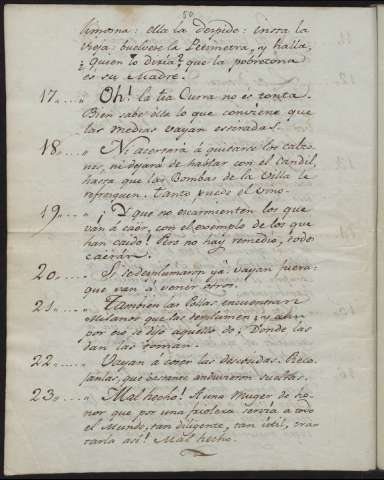 50
limosna: ella la despide: insta la
vieja: buelvese la Petimetra, y halla,
¿quien lo diria? que la pobretona
es su Madre.
17..... „ Oh! la tia Curra no es tonta.
Bien sabe esta lo que conviene que
las medias vayan estiradas.
18..... „ Ni acertará á quitarse los calzo-
nes, ni dejará de hablar con el candil,
hasta que las Bombas de la Villa le
refresquen. Tanto puede el vino.
19..... „ ¡Y que no escarmienten los que
van á caer, con el exemplo de los que
han caido! Pero no hay remedio, todos
caerán.
20..... „ Si se desplumaron ya vayan fuera:
que van á venir otros.
21..... „ Tambien las Pollas encuentran
Milanos que las desplumen, y aun
por eso se dijo aquello de: Donde las
dan las toman.
22..... „ Vayan á coser las descosidas. Reco-
janlas, que bastante anduvieron sueltas.
23..... „ Mal hecho! A una Muger de ho-
nor que por una friolera servia á todo
el Mundo, tan diligente, tan útil, tra-
tarla así! Mal hecho.